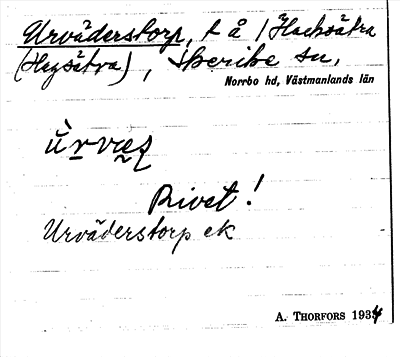 Urväderstorp, t å / Hochsätra
(Hegsätra), Skerike sn,
Norrbo hd, Västmanlands län
Rivet!
Urväderstorp ek
A. THORFORS 1934